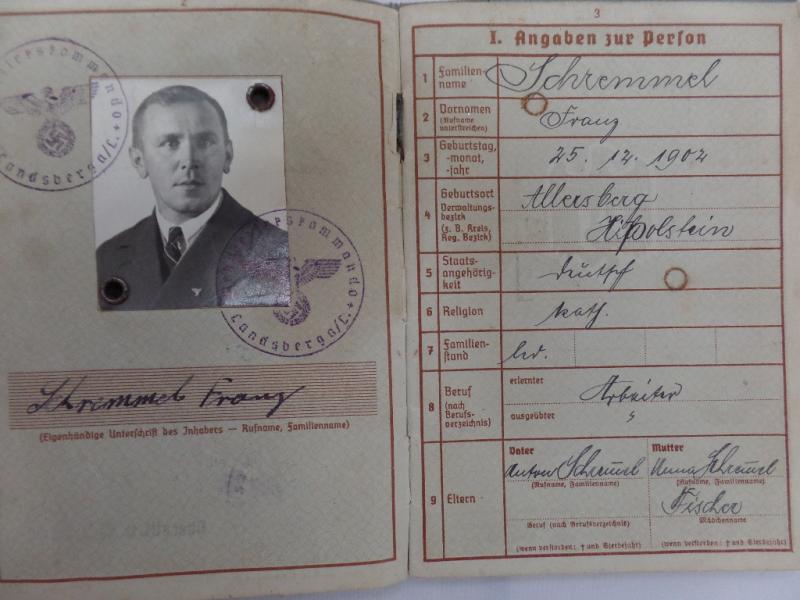 2
Landsberg a/L.
Landsberg a/L.
Schremmel Franz
(Eigenhändige Unterschrift des Inhabers — Rufname, Familienname)
3
I. Angaben zur Person
1 Familien-
name
Schremmel
2 Vornamen
(Rufname
unterstreichen)
Franz
3 Geburtstag,
-monat,
-jahr
25. 12. 1902
4 Geburtsort
Verwaltungs-
bezirk
(z. B. Kreis,
Reg. Bezirk)
Allersberg
Hilpolstein
5 Staats-
angehörig-
keit
deutsch
6 Religion
kath.
7 Familien-
stand
led.
8 Beruf
(nach
Berufs-
verzeichnis)
erlernter
Arbeiter
ausgeübter
"
9 Eltern
Vater
Anton Schremmel
(Rufname, Familienname)
Beruf (nach Berufsverzeichnis)
(wenn verstorben: † und Sterbejahr)
Mutter
Anna Schremmel
(Rufname, Familienname)
Fischer
Mädchenname
(wenn verstorben: † und Sterbejahr)